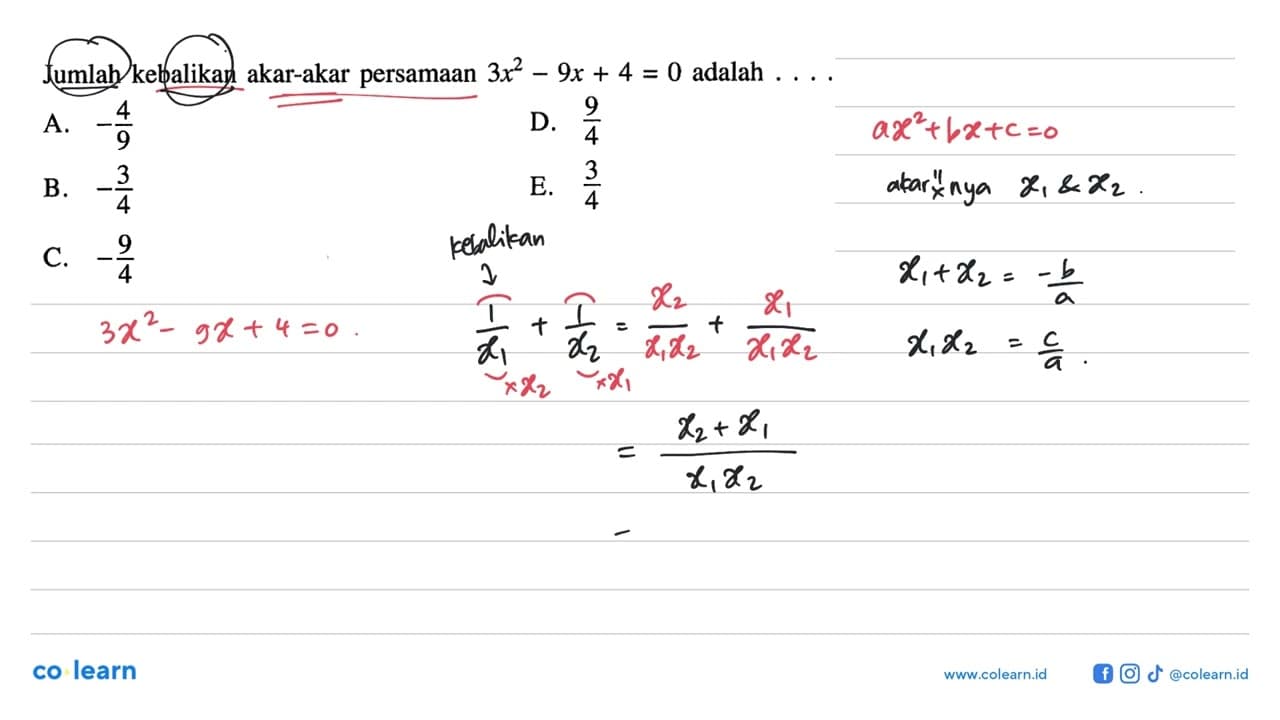 Jumlah kebalikan akar-akar persamaan 3x² − 9x + 4 = 0 adalah . . . .
A. −4/9
D. 9/4
B. −3/4
E. 3/4
C. −9/4
ax²+bx+c=0
akar"nya x₁ & x₂ .
kebalikan
x₁+x₂ = -b/a
3x²- 9x + 4 = 0 .
1/x₁ + 1/x₂ = x₂/x₁x₂ + x₁/x₁x₂
×x₂ ×x₁
x₁x₂ = c/a .
= x₂ + x₁/x₁x₂
-
co learn
www.colearn.id
@colearn.id